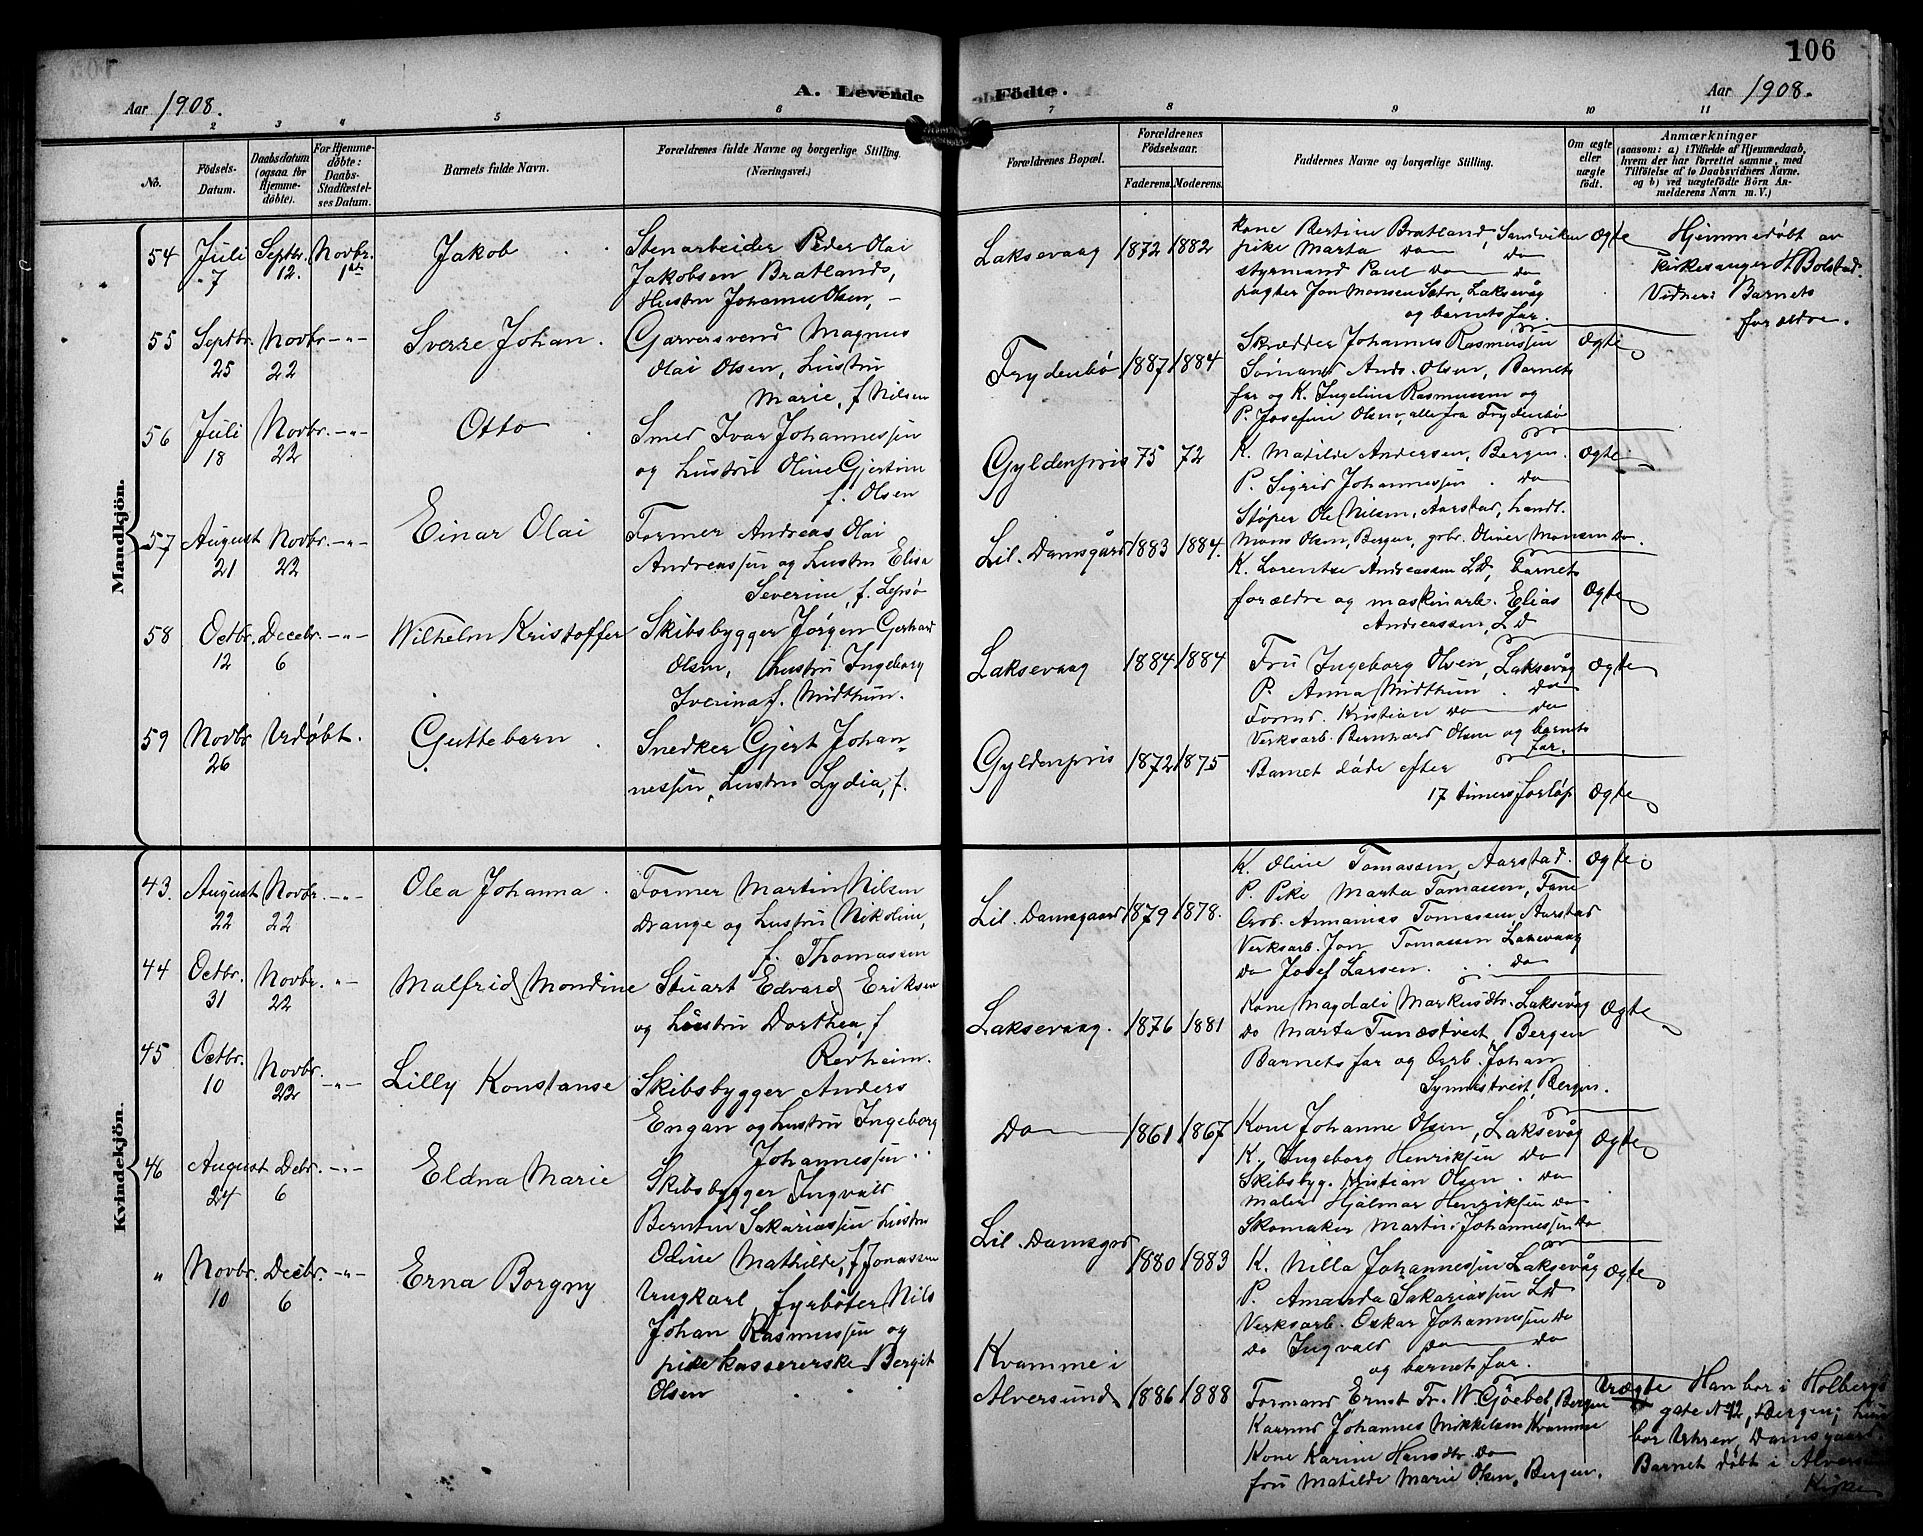 106
Aar 1908.
A. Levende
Födte.
Aar 1908.
1 2 3 4 5 6 7 8 9 10 11
No.
Födsels-
Datum.
Daabsdatum
(ogsaa for
Hjemme-
döbte).
For Hjemme-
döbte:
Daabs-
Stadfæstel-
ses Datum.
Barnets fulde Navn.
Forældrenes fulde Navne og borgerlige Stilling.
(Næringsvei.)
Forældrenes Bopæl.
Forældrenes
Födselsaar.
Faderens. Moderens.
Faddernes Navne og borgerlige Stilling.
Om ægte
eller
uægte
födt.
Anmærkninger
(saasom: a) i Tilfælde af Hjemmedaab,
hvem der har forrettet samme, med
Tilföielse af to Daabsvidners Navne.
og b) ved uægtefödte Börn An-
melderens Navn m. V.)
Mandkjön.
54 Juli 7 Septbr. 12. Novbr. 1ste
Jakob
Stenarbeider Peder Olai
Jakobsen Bratlands,
Hustru Johanne Olsen, –
Laksevaag 1872 1882
Kone Bertine Bratland, Sandviken
pike Marta do do
styrmand Paul do do
pagter Jon Monsen Sætr, Laksevåg
og barnets far.
Ægte
Hjemmedøbt av
kirkesanger H. Bolstad.
Vidner: Barnets
forældre.
55 Septbr. 25 Novbr. 22 -"-
Sverre Johan.
Garversvend Magnus
Olai Olsen, hustru
Marie, f. Nilsen
Frydenbø 1887 1884
Skrædder Johannes Rasmussen
Sømand Ands. Olsen, Barnets
far og K. Ingeline Rasmussen og
P. Josefine Olsen, alle fra Frydenbø
Ægte
56 Juli 18 Novbr. 22 -"-
Otto
Smed Ivar Johannessen
og hustru Oline Gjertine
f. Olsen
Gyldenpris 75 72
K. Matilde Andersen, Bergen.
P. Sigrid Johannessen. do
Støper Ole Nilsen, Aarstad, handl.
Mons Olsen, Bergen, grbr. Oliver Monsen do.
Ægte
57 August 21 Novbr. 22 -"-
Einar Olai
Former Andreas Olai
Andreassen og hustru Elisa
Severine, f. Lepsø
Lil. Damsgård 1883 1884.
K. Lorentze Andreassen LD, Barnets
forældre og maskinarb. Elias
Andreassen, LD
Ægte
58 Octbr. 12 Decbr. 6 -"-
Wilhelm Kristoffer
Skibsbygger Jørgen Gerhard
Olsen, hustru Ingeborg
Iverina f. Midthun.
Laksevaag 1884 1884
Fru Ingeborg Olsen, Laksevåg
P. Anna Midthun. do
Formd. Kristian do do
Verksarb. Bernhard Olsen og barnets
far.
Ægte
59 Novbr 26 Udøbt.
Guttebarn
Snedker Gjert Johan-
nessen, hustru Lydia, f.
Gyldenpris 1872 1875
Barnet døde efter
17 timers forløp
Ægte
Kvindekjön.
43. August 22 Novbr. 22 -"-
Olea Johanna.
Former Martin Nilsen
Drange og hustru Nikoline,
f. Thomassen
Lil. Damsgaard 1879 1878.
K. Oline Tomassen, Aarstad.
P. Pike Marta Tomassen, Fane
Arb. Annanias Tomassen, Aarstad
Verksarb. Jon Tomassen Laksevaag
do Josef Larsen. do
Ægte
44 Octbr. 31 Novbr. 22 -"-
Malfrid Mondine
Stuart Edvard Eriksen
og hustru Dorthea, f.
Revheim.
Laksevaag. 1876 1881
Kone Magdali Markusdtr. Laksevåg
do Marta Tunæstveit, Bergen
Barnets far og Arb. Johan
Bergen.
Ægte
45 Octbr. 10 Novbr. 22 -"-
Lilly Konstanse
Skibsbygger Anders
Engan og hustru Ingeborg
Johannessen
Do 1861 1867
Kone Johanne Olsen, Laksevåg
K. Ingeborg Henriksen Do
Skibsbyg. Kristian Olsen. do
maler Hjalmar Henriksen do
Skomaker Martin Johannessen do
Ægte
46 August 24 Debr. 6 -"-
Eldna Marie
Skibsbygger Ingvald
Berntin Sakariassen hustru
Odine Mathilde, f. Jonassen
Lil. Damsgrd 1880 1883
K. Nilla Johannessen Laksevåg
P. Amanda Sakariassen LD
Verksarb. Oskar Johannessen Do
do Ingvald do do
og barnets far.
Ægte
" Novbr. 10 Decbr. 6 -"-
Erna Borgny
Ungkarl, fyrbøter Nils
Johan Rasmussen og
pike kassererske Bergit
Olsen
Kvamme i
Alversund 1886 1888
Formand Ernst Fr. W. Göebel, Bergen
Karmd Johannes Mikkelsen Kvamme
Kone Karine Hansdtr. Do
fru Matilde Marie Olsen, Bergen.
Uægte
Han bor i Holbergs
gate No 12, Bergen; hun
bor Uhren, Damsgaard.
Barnet døbt i Alversund
Kirke